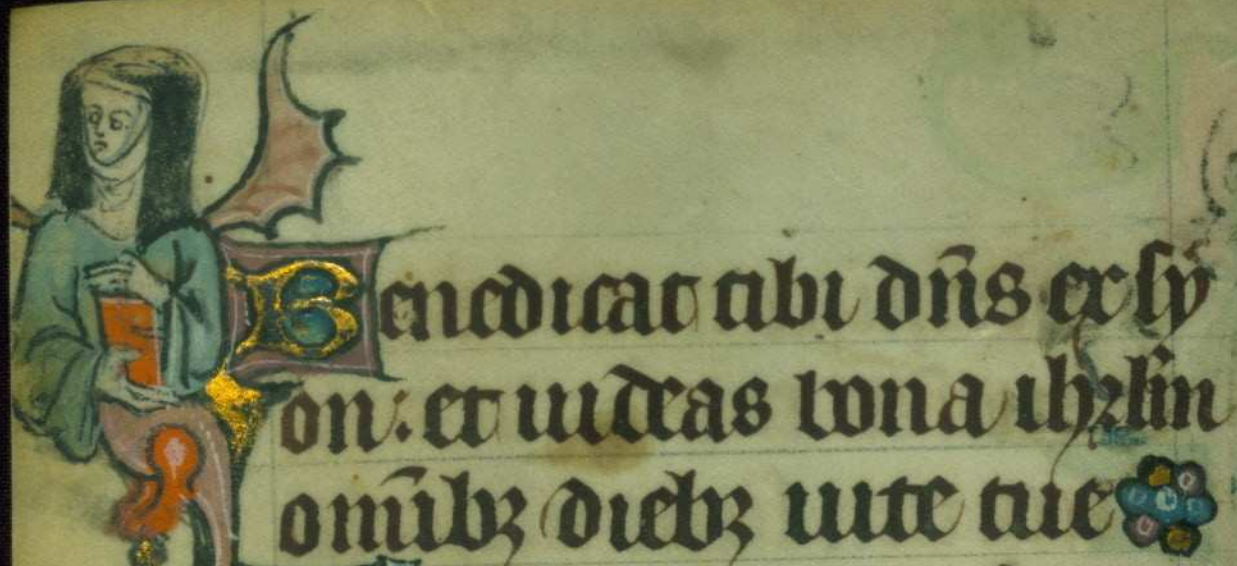 Benedicat tibi dn̄s ex sy
on: et uideas bona ihrl̄m
omībꝫ diebꝫ uite tue